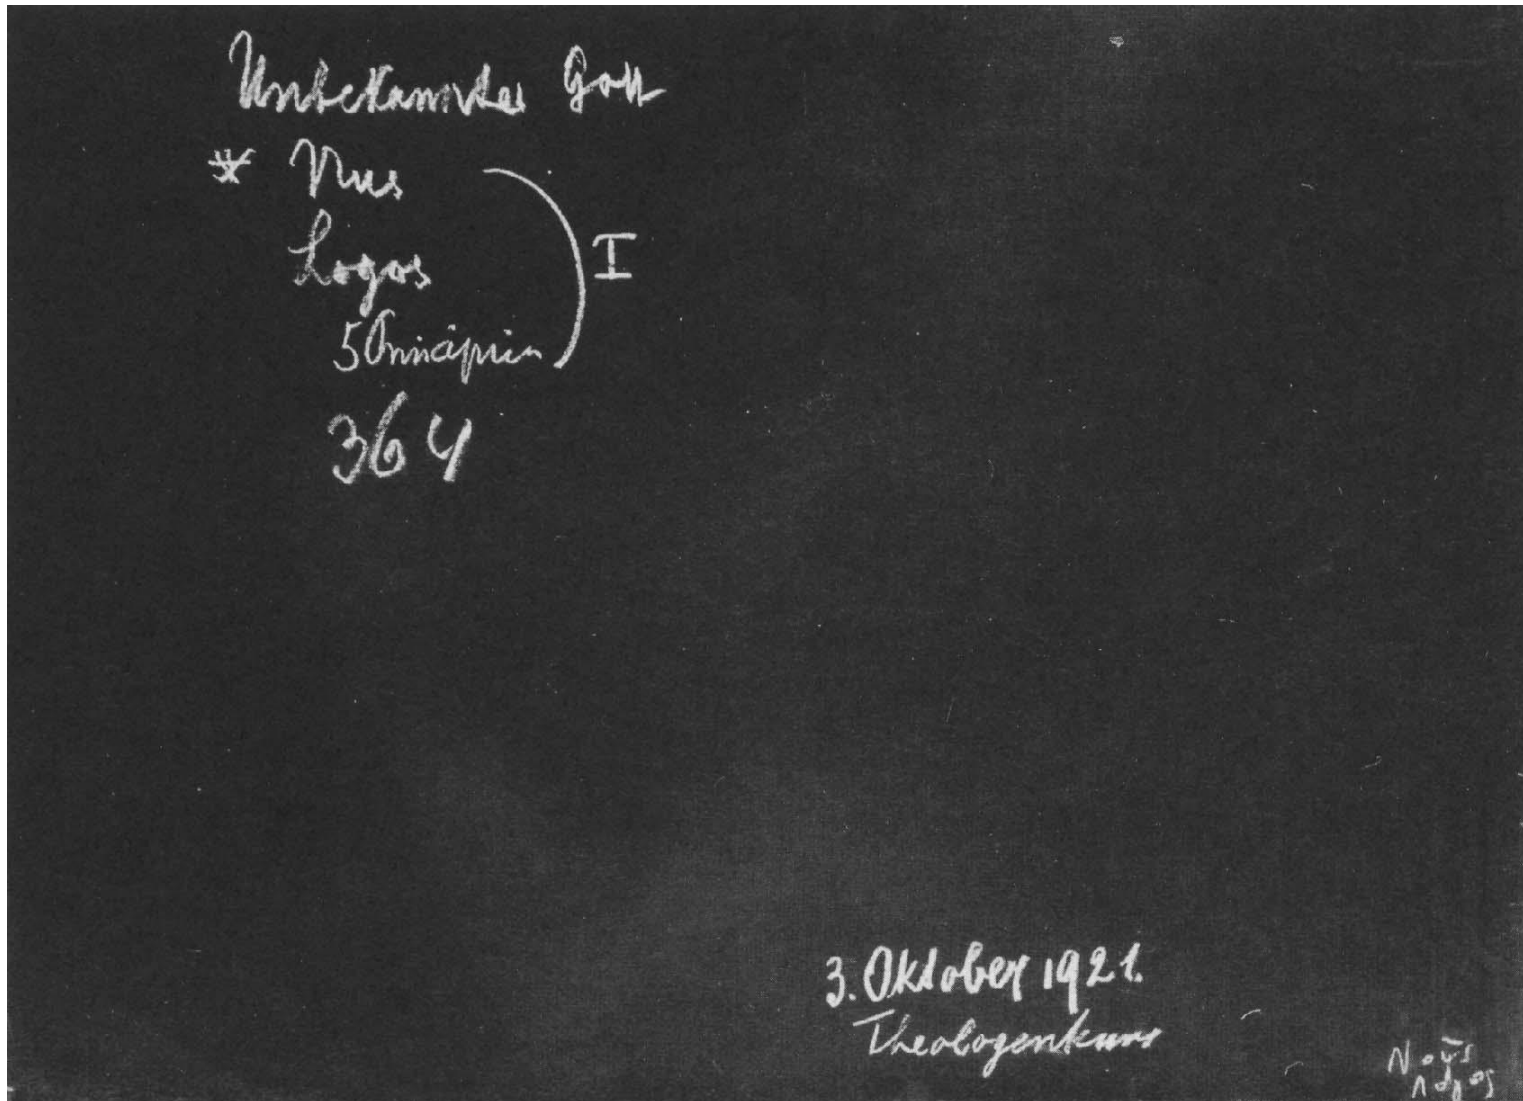 Unbekannter Gott
* Nus
Logos
5 Prinzipien
I
364
3. Oktober 1921.
Theologenkurs